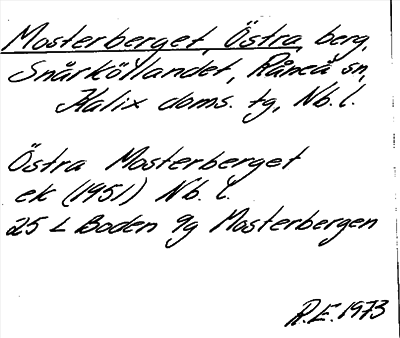 Mosterberget, Östra, berg,
Snårköllandet, Råneå sn,
Kalix doms. tg, Nb. l.
Östra Mosterberget
ek (1951) Nb. l.
25 L Boden 9g Mosterbergen
R.E. 1973